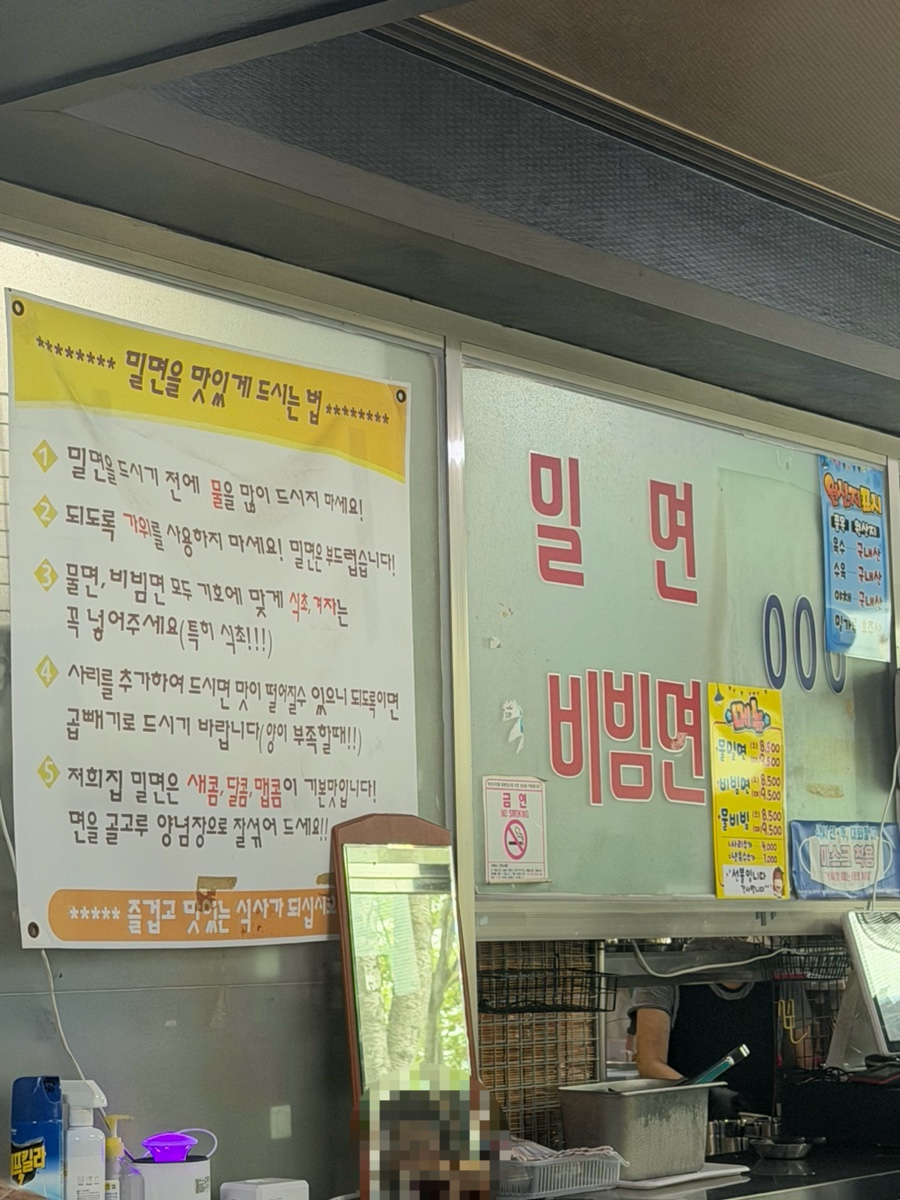 ******** 밀면을 맛있게 드시는 법 ********
1 밀면을 드시기 전에 물을 많이 드시지 마세요!
2 되도록 가위를 사용하지 마세요! 밀면은 부드럽습니다!
3 물면, 비빔면 모두 기호에 맞게 식초, 겨자는
꼭 넣어주세요(특히 식초!!!)
4 사리를 추가하여 드시면 맛이 떨어질수 있으니 되도록이면
곱빼기로 드시기 바랍니다(양이 부족할때!!)
5 저희집 밀면은 새콤, 달콤, 맵콤이 기본맛입니다!
면을 골고루 양념장으로 잘섞어 드세요!!
***** 즐겁고 맛있는 식사가 되십시
밀 면
비빔면
000
원산지표시
품목 원산지
육수 국내산
수육 국내산
야채 국내산
메뉴
물밀면 (소) 8,500
(대) 9,500
비빔면 (소) 8,500
(대) 9,500
물비빔 (소) 8,500
(대) 9,500
사리추가 4,000
1,000
선불입니다
금연
NO SMOKING
마스크 착용
킬라